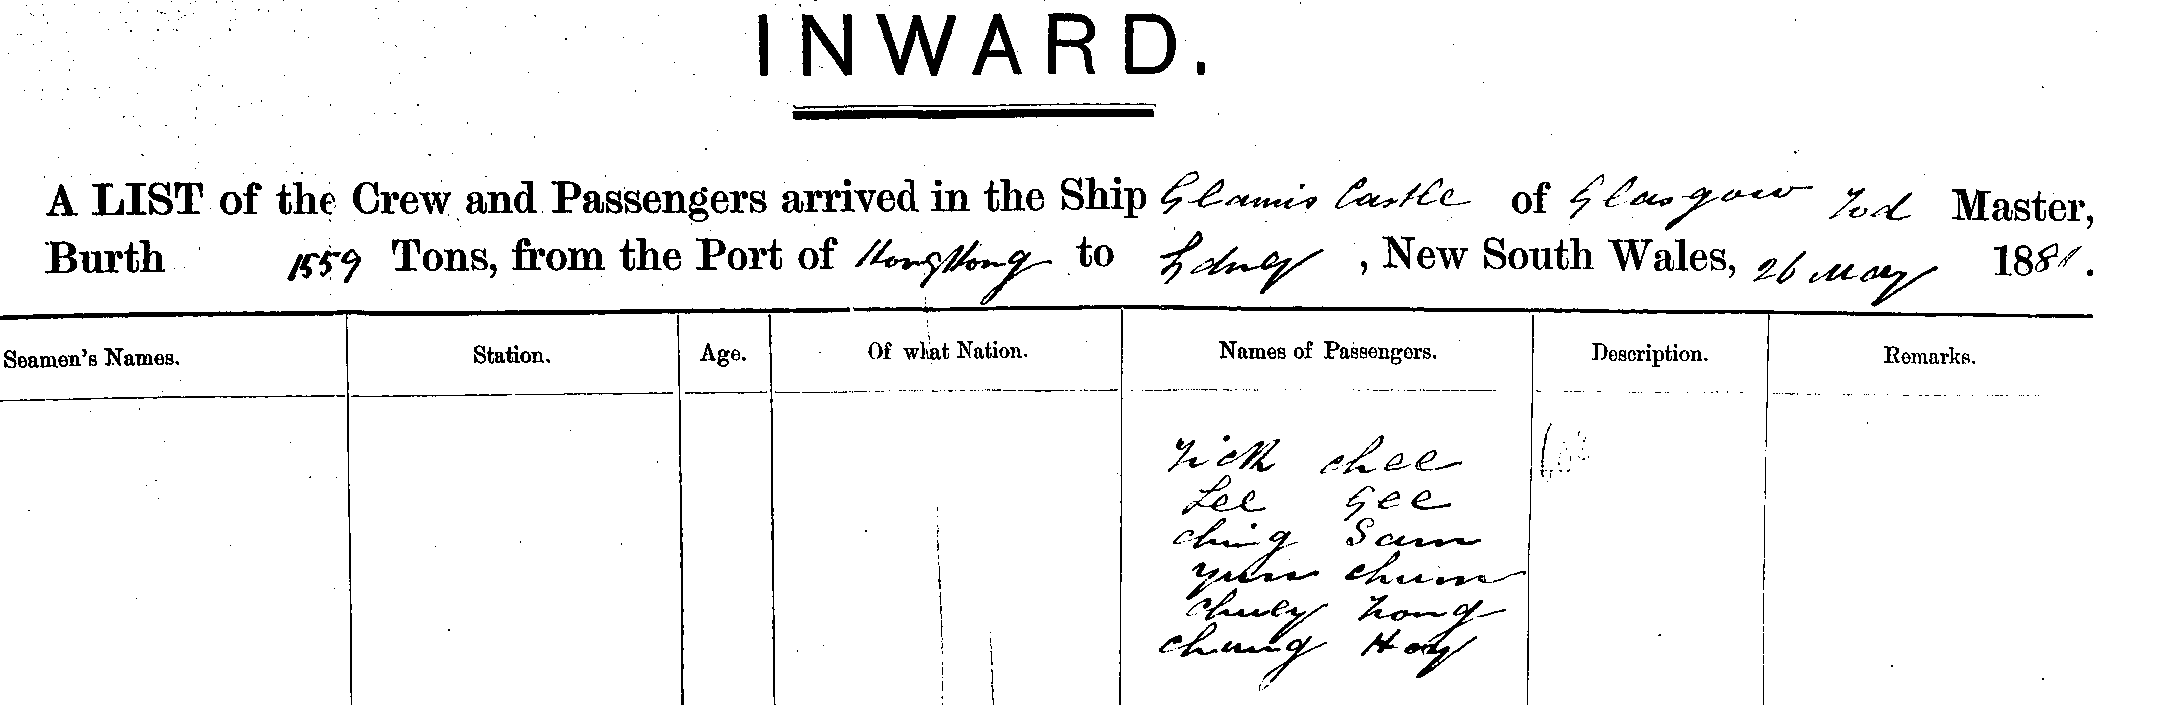 INWARD.
A LIST of the Crew and Passengers arrived in the Ship Glamis Castle of Glasgow Tod Master,
Burth 1559 Tons, from the Port of HongKong to Sydney, New South Wales, 26 May 1881.
Seamen's Names. Station. Age. Of what Nation. Names of Passengers. Description. Remarks.
chee
Lee Gee
Ching Sam
Yum Chum
Chuey
Chung Hoy